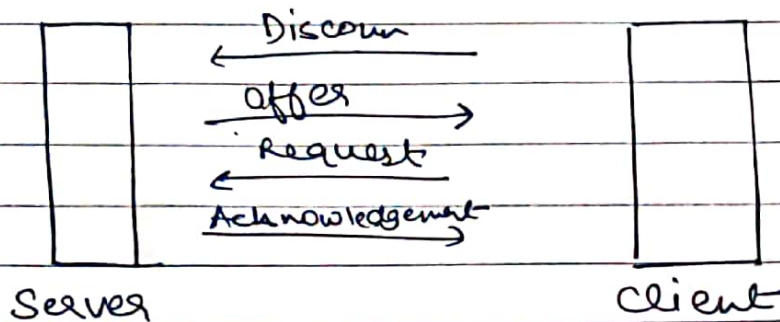 Discoun
offer
Request
Acknowledgement
Server Client